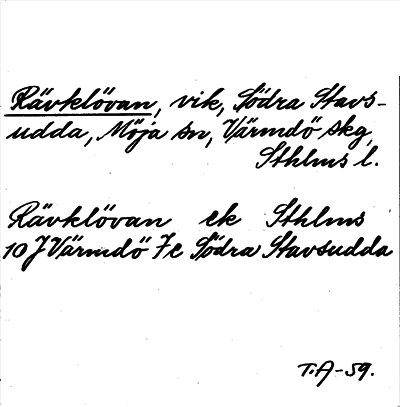 Rävklövan, vik, Södra Stavs-
udda, Möja sn, Värmdö skg,
Sthlms l.
Rävklövan ek Sthlms
10 J Värmdö 7e Södra Stavsudda
T.A-59.